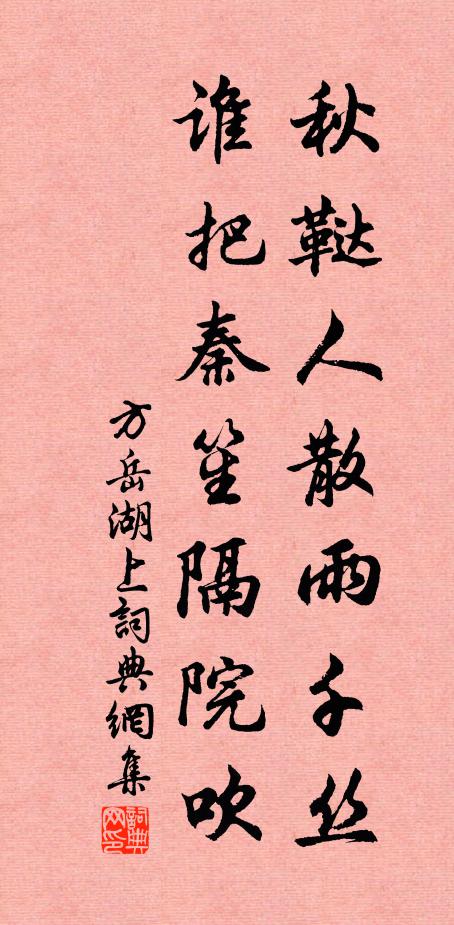 秋鞑人散雨千丝
谁把秦笙隔院吹
方岳湖上詞典網集
詞典网印